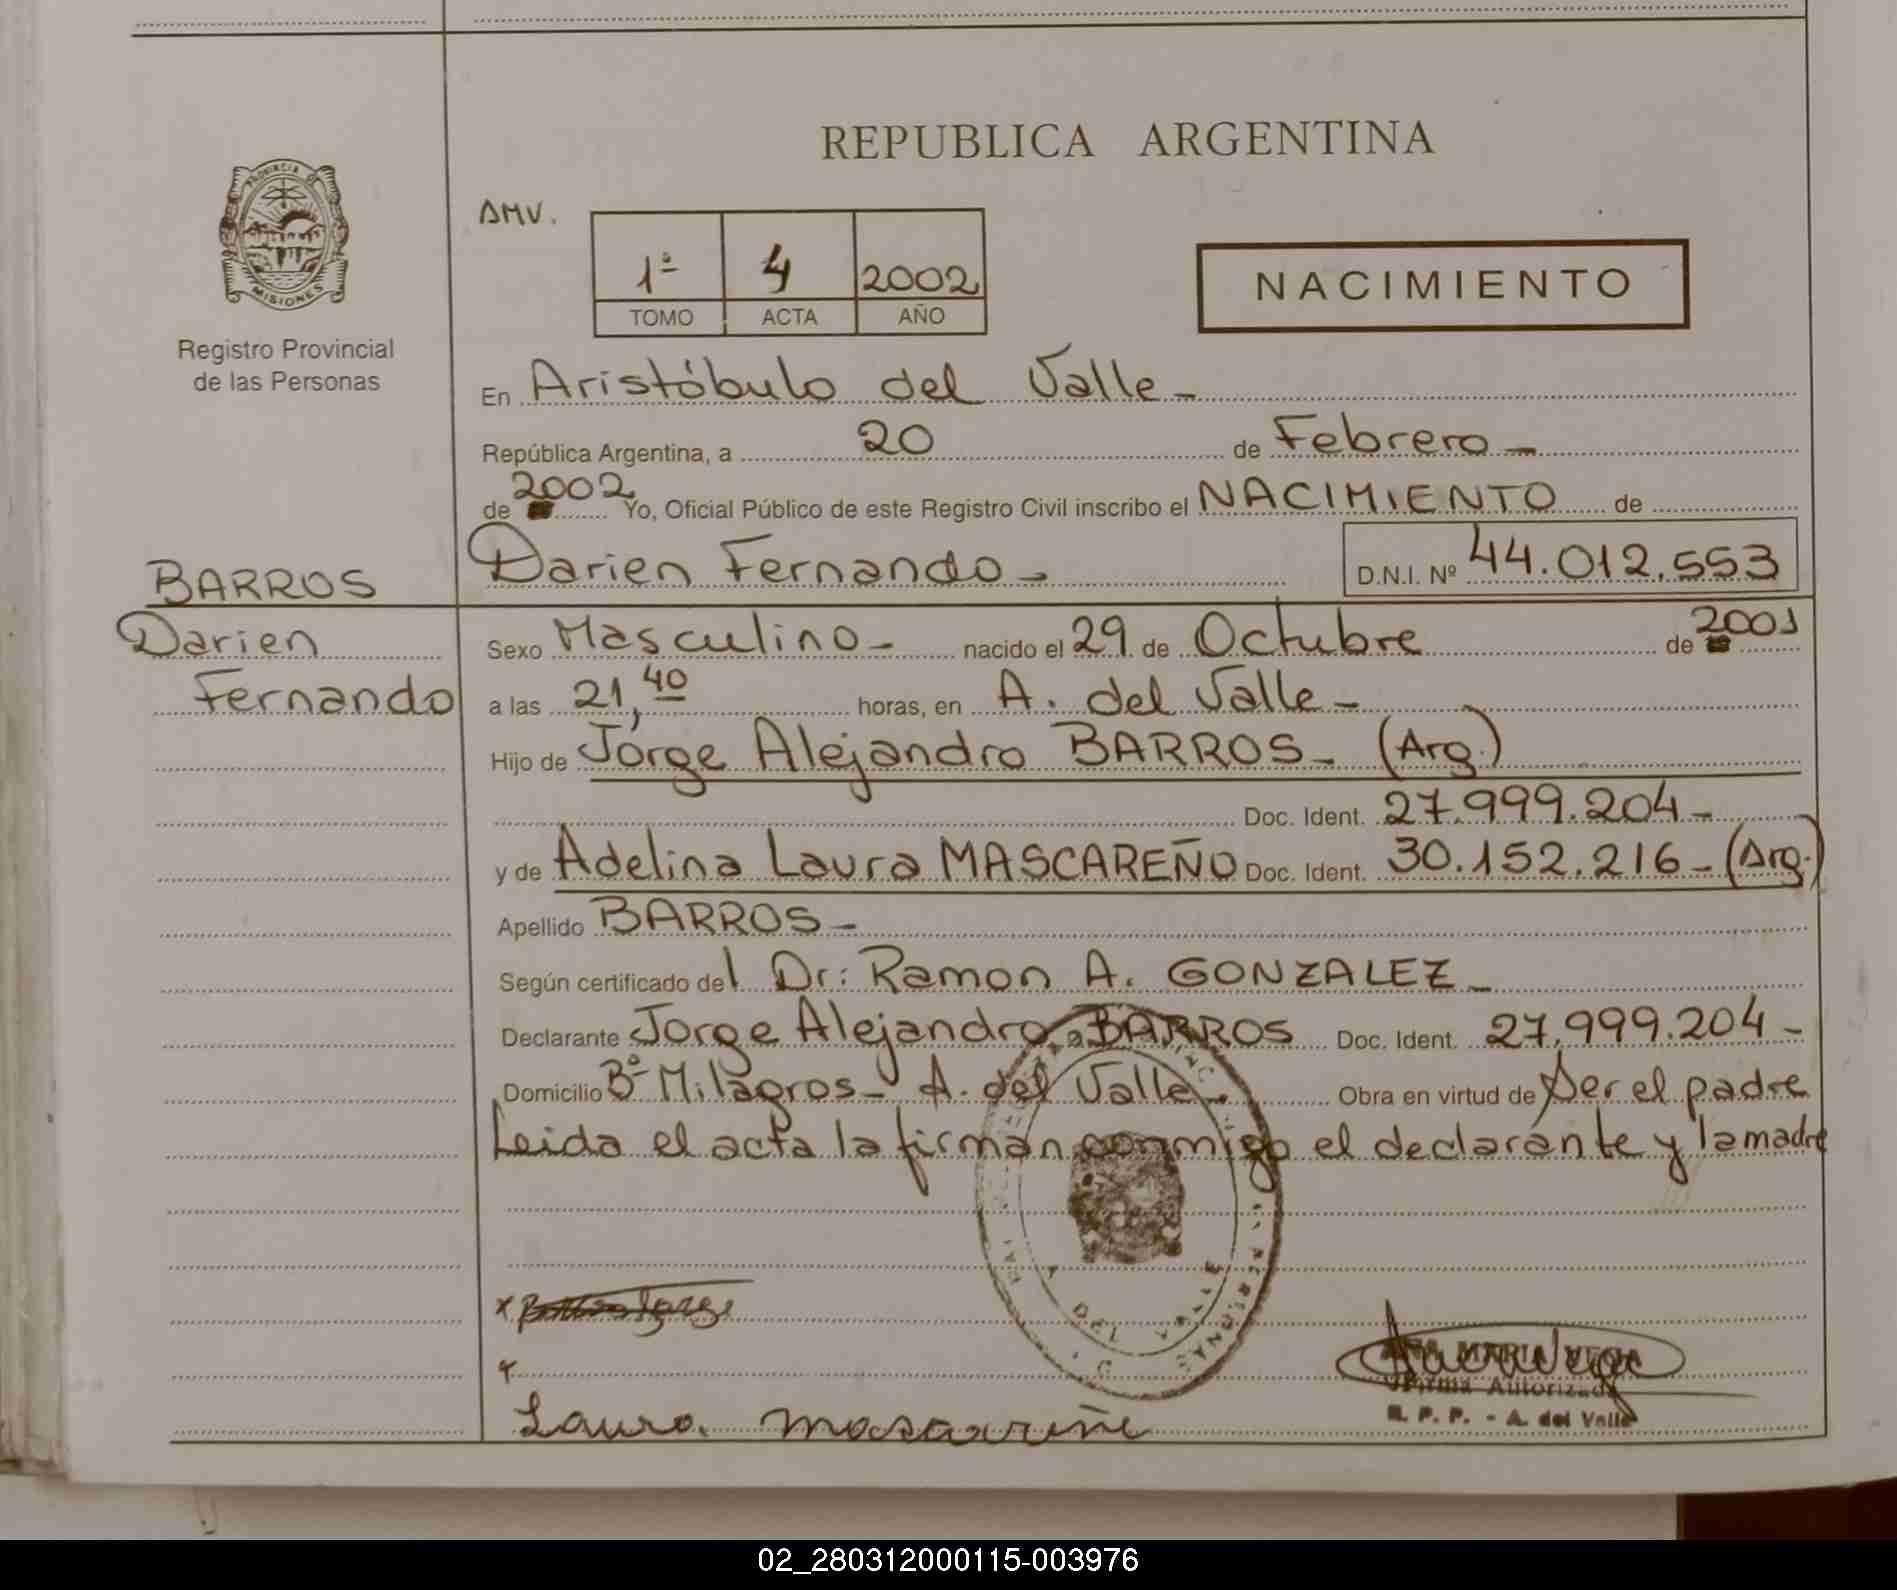 REPUBLICA ARGENTINA
PROVINCIA DE
MISIONES
Registro Provincial
de las Personas
AMV.
1ª 4 2002
TOMO ACTA AÑO
NACIMIENTO
En Aristóbulo del Valle -
República Argentina, a 20 de Febrero -
de 2002 Yo, Oficial Público de este Registro Civil inscribo el NACIMIENTO de
Darien Fernando - D.N.I. Nº 44.012.553
BARROS
Darien
Fernando
Sexo Masculino - nacido el 29 de Octubre de 2001
a las 21,40 horas, en A. del Valle -
Hijo de Jorge Alejandro BARROS - (Arg.)
Doc. Ident. 27.999.204 -
y de Adelina Laura MASCAREÑO Doc. Ident. 30.152.216 - (Arg.)
Apellido BARROS -
Según certificado del Dr: Ramon A. GONZALEZ -
Declarante Jorge Alejandro BARROS Doc. Ident. 27.999.204 -
Domicilio Bº Milagros - A. del Valle - Obra en virtud de Ser el padre
Leida el acta la firman conmigo el declarante y la madre
Laura Mascareñe
ANA MARIA VEGA
Firma Autorizada
R. P. P. - A. del Valle
02_280312000115-003976